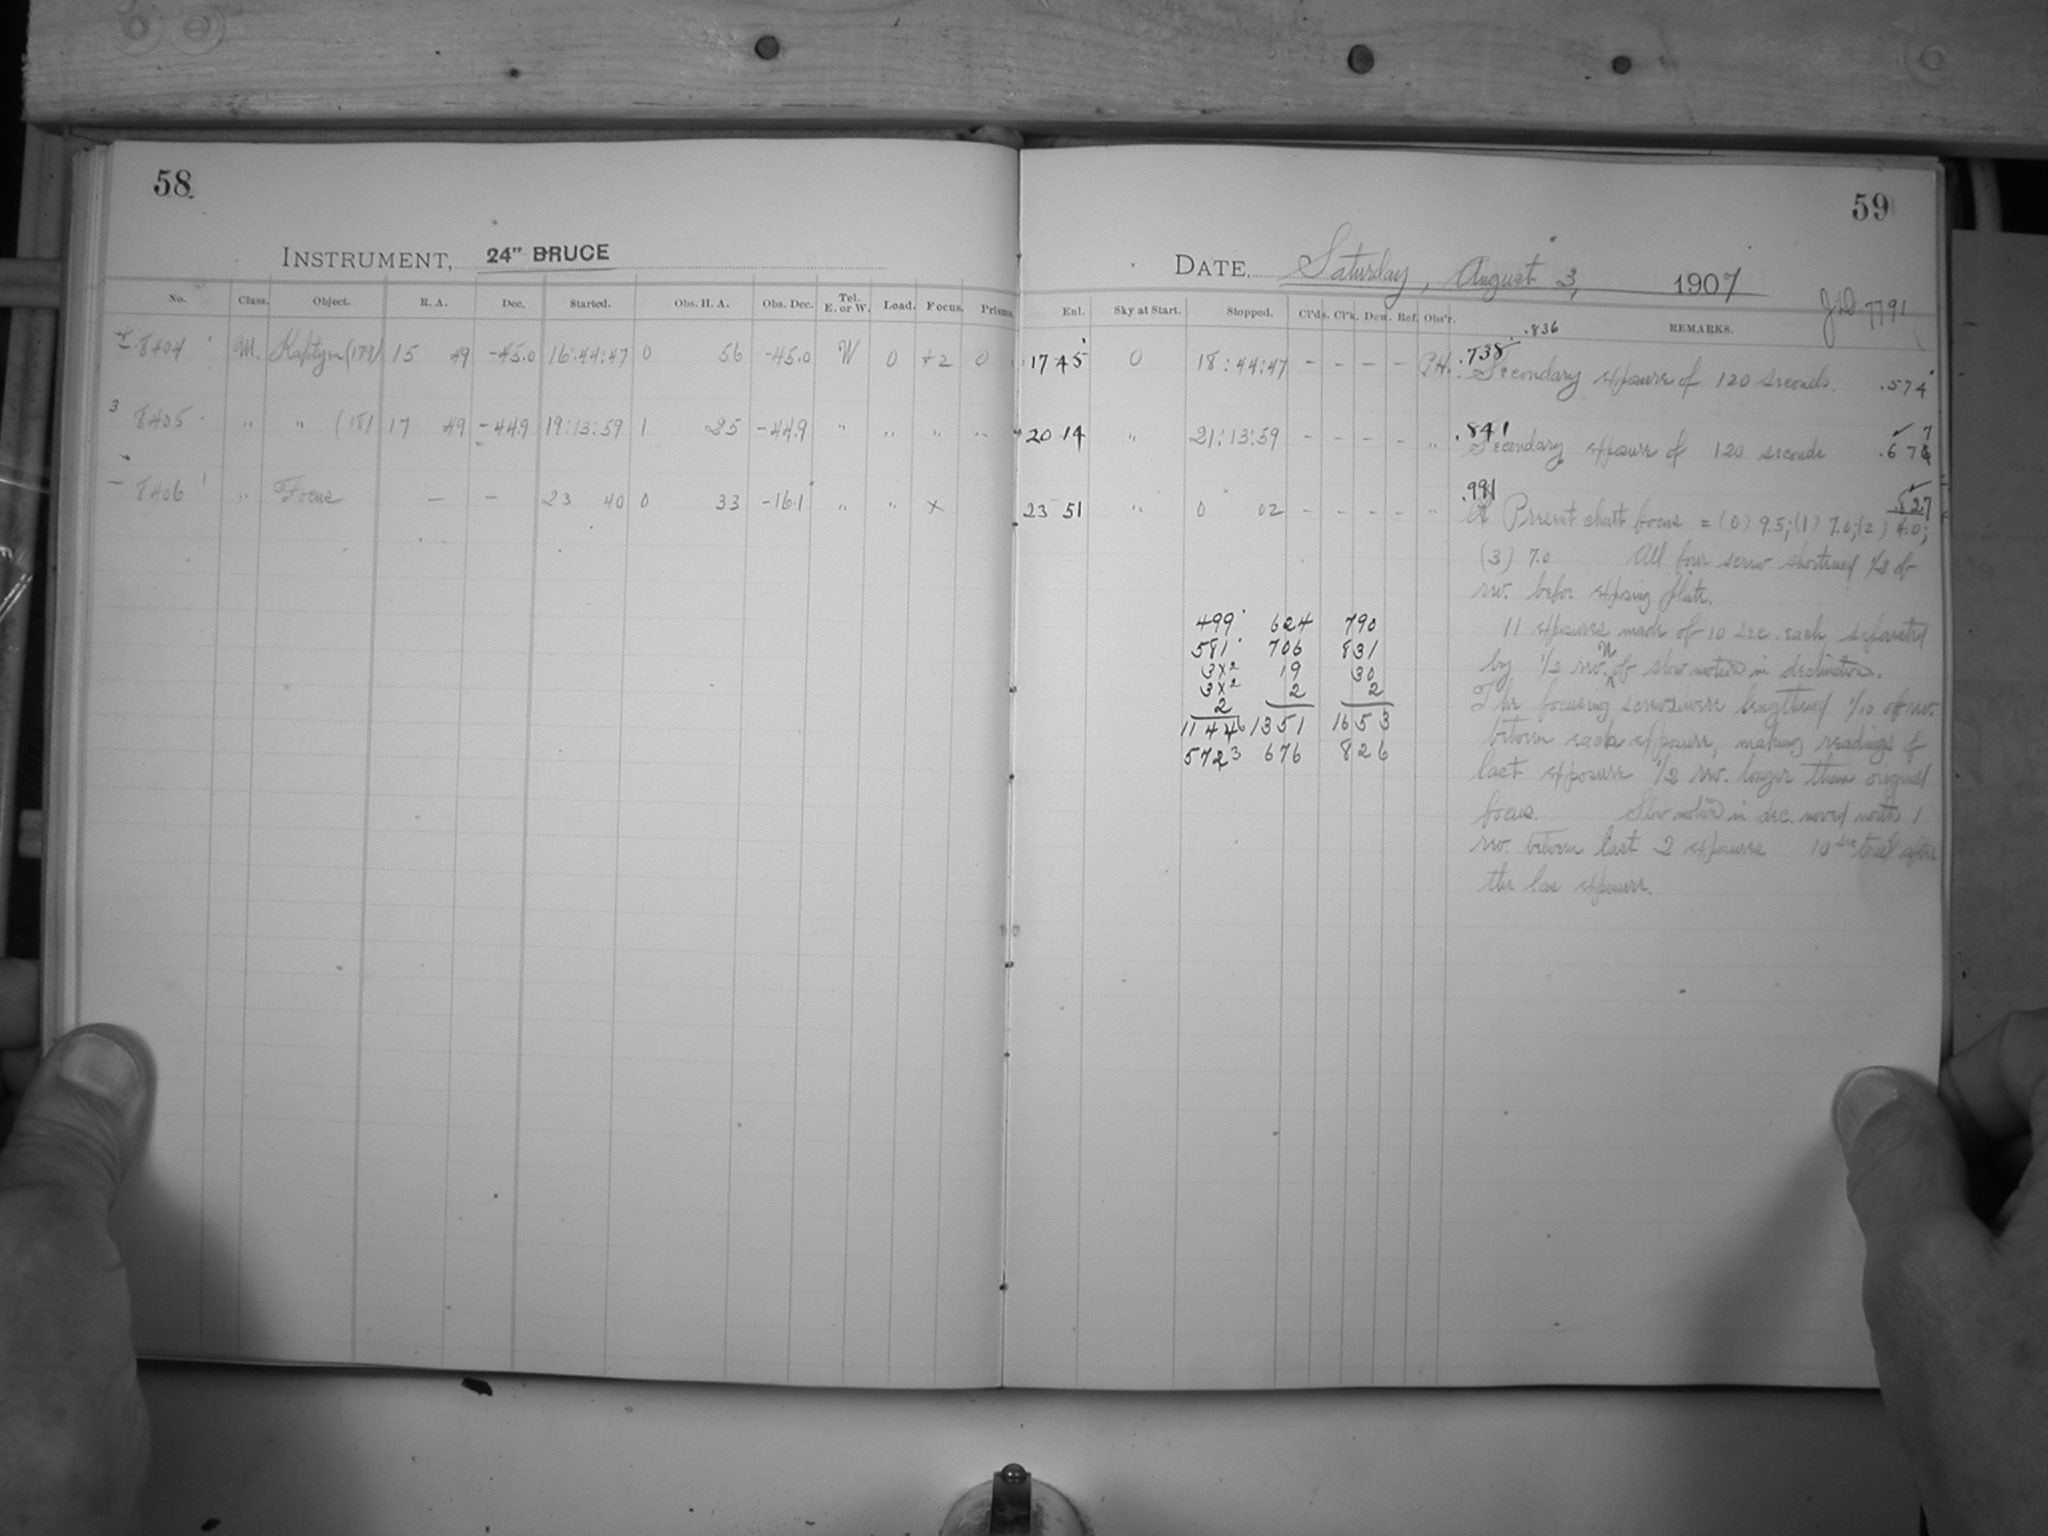 58
INSTRUMENT, 24" BRUCE
No. Class. Object. R. A. Dec. Started. Obs. H. A. Obs. Dec. Tel. E. or W. Load. Focus. Prisms.
8404 M. Kapteyn (179) 15 49 -45.0 16:44:47 0 56 -45.0 W 0 +2 0
3 8405 " " (181 17 49 -44.9 19:13:59 1 25 -44.9 " " " "
8406 " Focus — — 23 40 0 33 -16.1 " " x
59
DATE, Saturday, August 3, 1907
J.D. 7791
Exl. Sky at Start. Stopped. Cl'ds. Cl'k. Dew. Ref. Obs'r. .836 REMARKS.
17 45 0 18:44:47 - - - - P.H. .738 Secondary exposure of 120 seconds. .574
20 14 " 21:13:59 - - - - " .841 Secondary exposure of 120 seconds .676 7
23 51 " 0 02 - - - - " .991 .827
Present chart focus = (0) 9.5; (1) 7.0; (2) 4.0;
(3) 7.0 All four screw shortened 1/2 of
rev. befor exposing plate.
11 exposures made of 10 sec. each separated
by 1/2 rev. N of slow motion in declination.
The focusing screws were lengthened 1/10 of rev.
between each exposure, making readings of
last exposure 1/2 rev. longer than original
focus. Slow motion in dec. moved north 1
rev. between last 2 exposures 10 sec trail after
the las exposure.
499 624 790
581 706 831
3x2 19 30
3x2 2 2
2
11446 1351 1653
5723 676 826